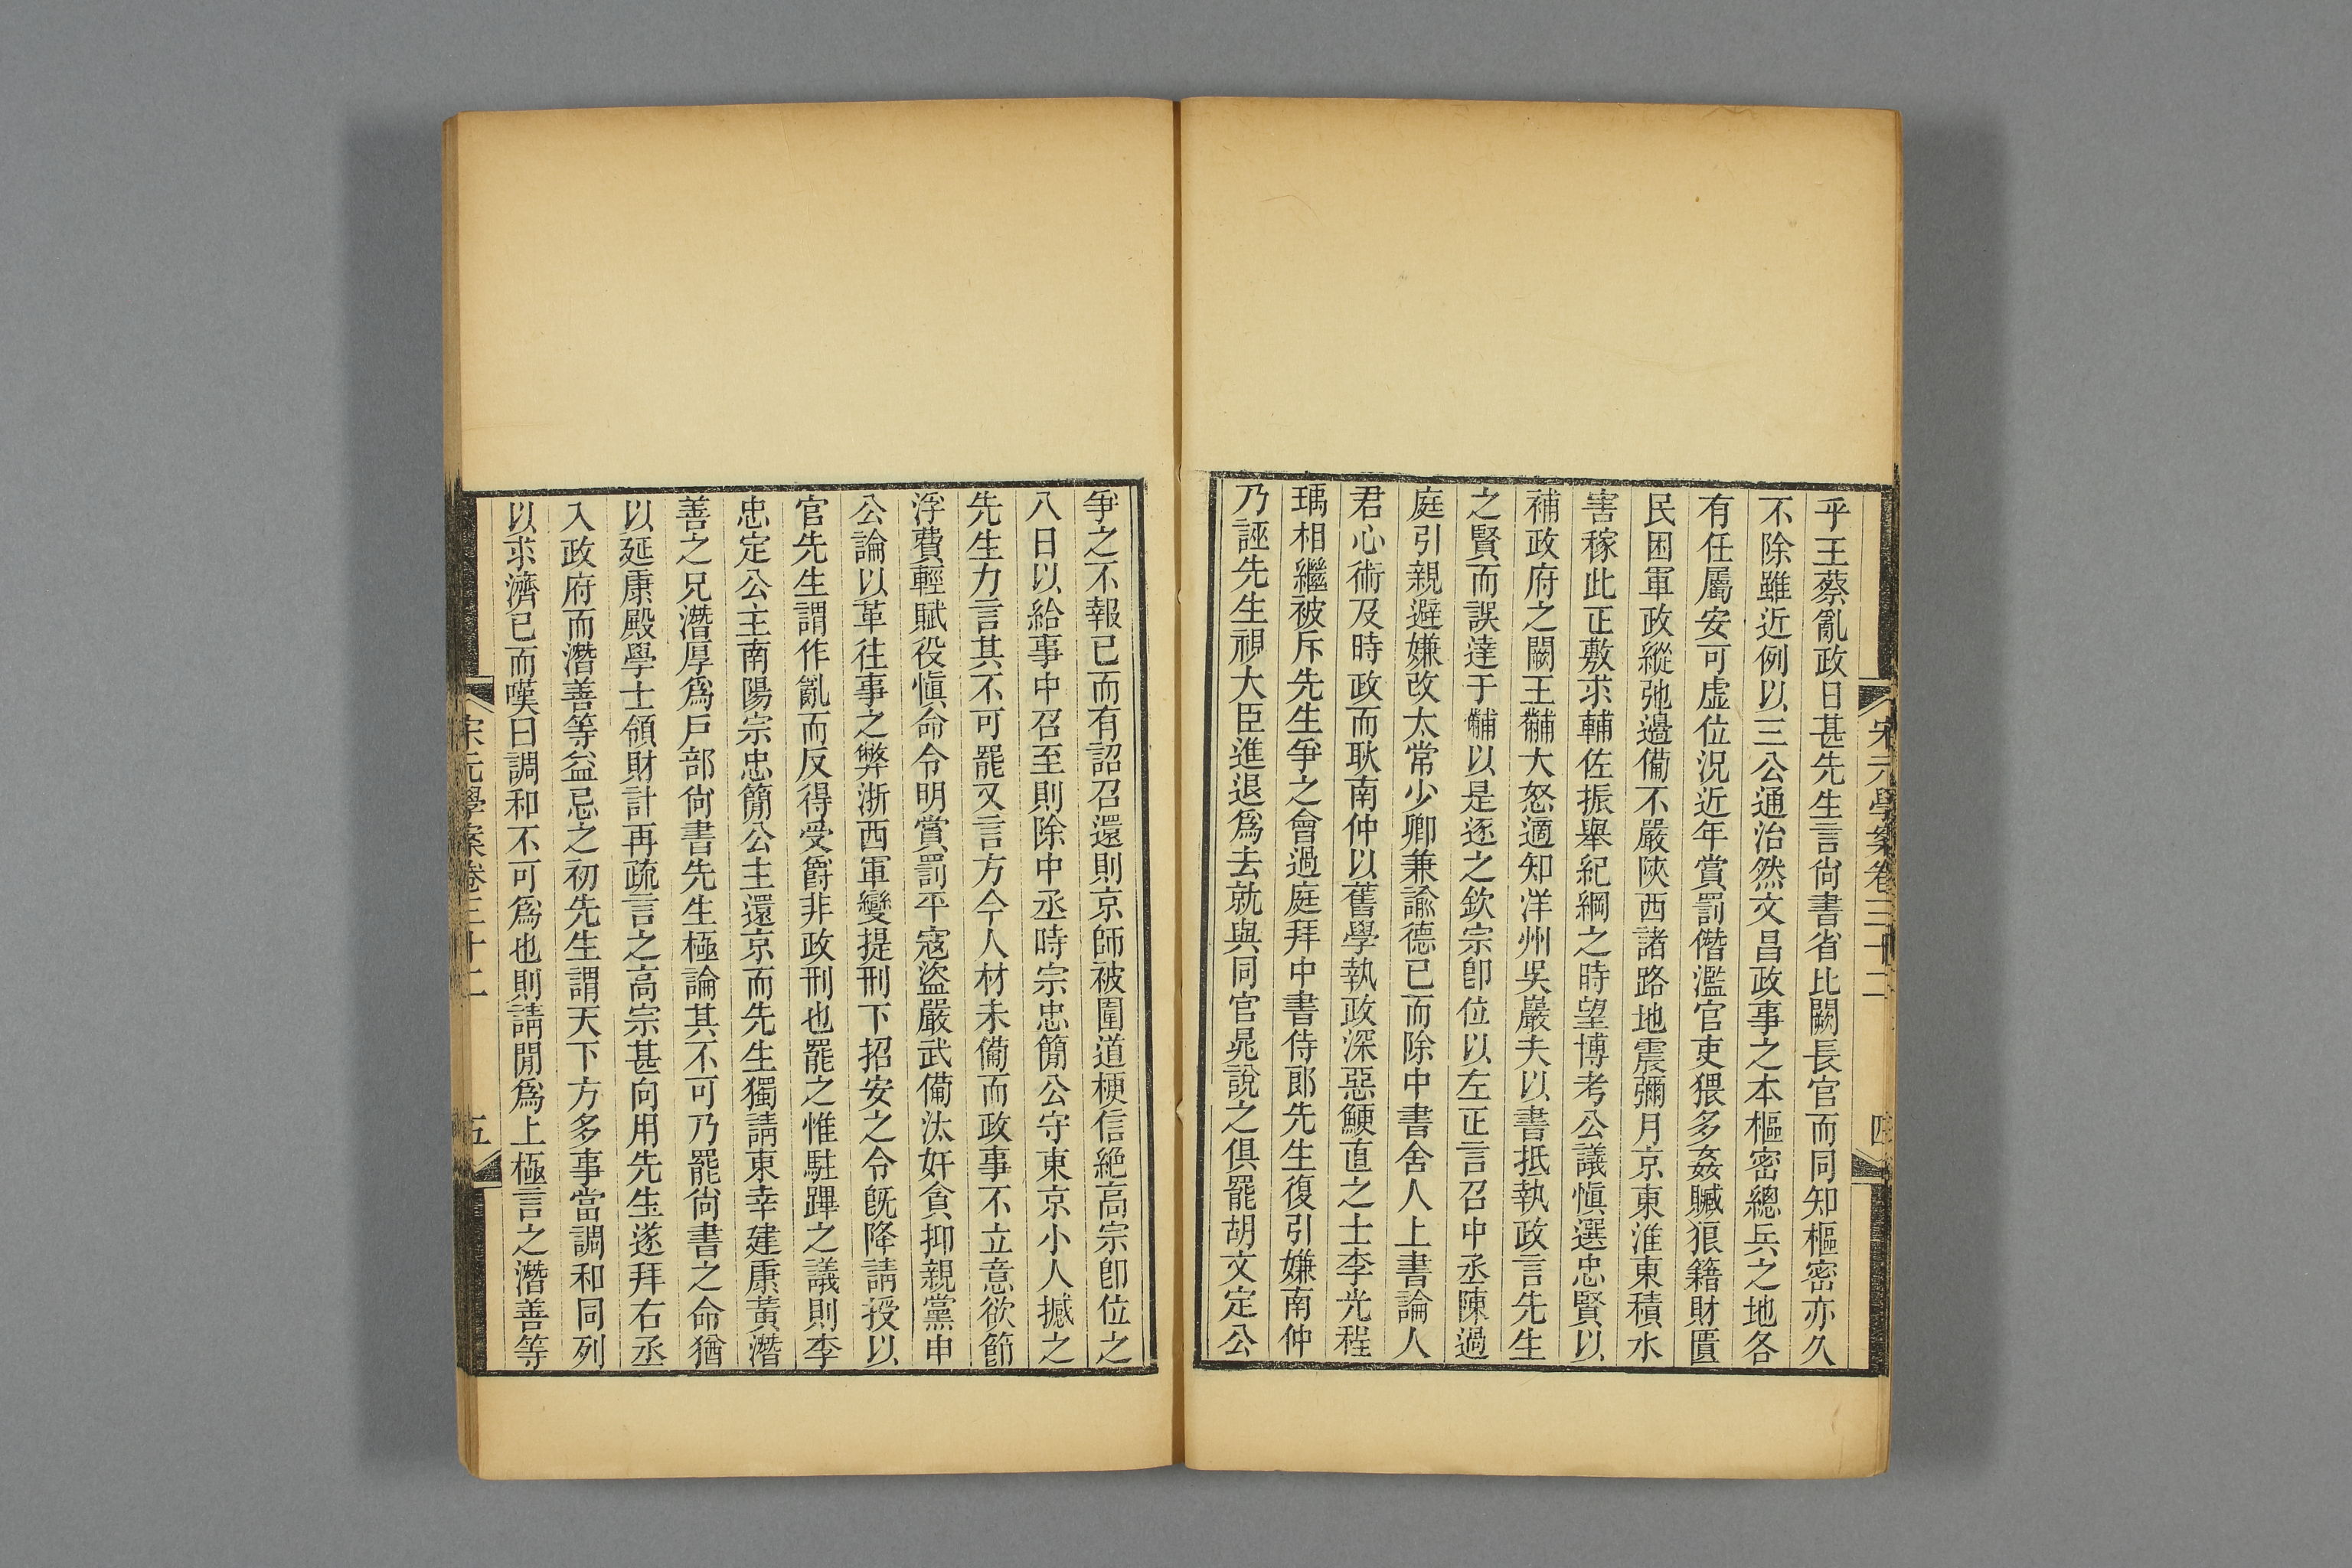 宋元學案卷三十二
四
乎王蔡亂政日甚先生言尙書省比闕長官而同知樞密亦久
不除雖近例以三公通治然文昌政事之本樞密總兵之地各
有任屬安可虛位況近年賞罰僭濫官吏猥多姦贓狼籍財匱
民困軍政縱弛邊備不嚴陝西諸路地震彌月京東淮東積水
害稼此正敷求輔佐振舉紀綱之時望博考公議愼選忠賢以
補政府之闕王黼大怒適知洋州吳巖夫以書抵執政言先生
之賢而誤達于黼以是逐之欽宗卽位以左正言召中丞陳過
庭引親避嫌改太常少卿兼諭德已而除中書舍人上書論人
君心術及時政而耿南仲以舊學執政深惡鯁直之士李光程
瑀相繼被斥先生爭之會過庭拜中書侍郎先生復引嫌南仲
乃誣先生視大臣進退爲去就與同官晁說之俱罷胡文定公
爭之不報已而有詔召還則京師被圍道梗信絶高宗卽位之
八日以給事中召至則除中丞時宗忠簡公守東京小人撼之
先生力言其不可罷又言方今人材未備而政事不立意欲節
浮費輕賦役愼命令明賞罰平寇盜嚴武備汰奸貪抑親黨申
公論以革往事之弊浙西軍變提刑下招安之令旣降請授以
官先生謂作亂而反得受爵非政刑也罷之惟駐蹕之議則李
忠定公主南陽宗忠簡公主還京而先生獨請東幸建康黃潛
善之兄潛厚爲戶部尙書先生極論其不可乃罷尙書之命猶
以延康殿學士領財計再疏言之高宗甚向用先生遂拜右丞
入政府而潛善等益忌之初先生謂天下方多事當調和同列
以求濟已而嘆曰調和不可爲也則請閒爲上極言之潛善等
宋元學案卷三十二
五